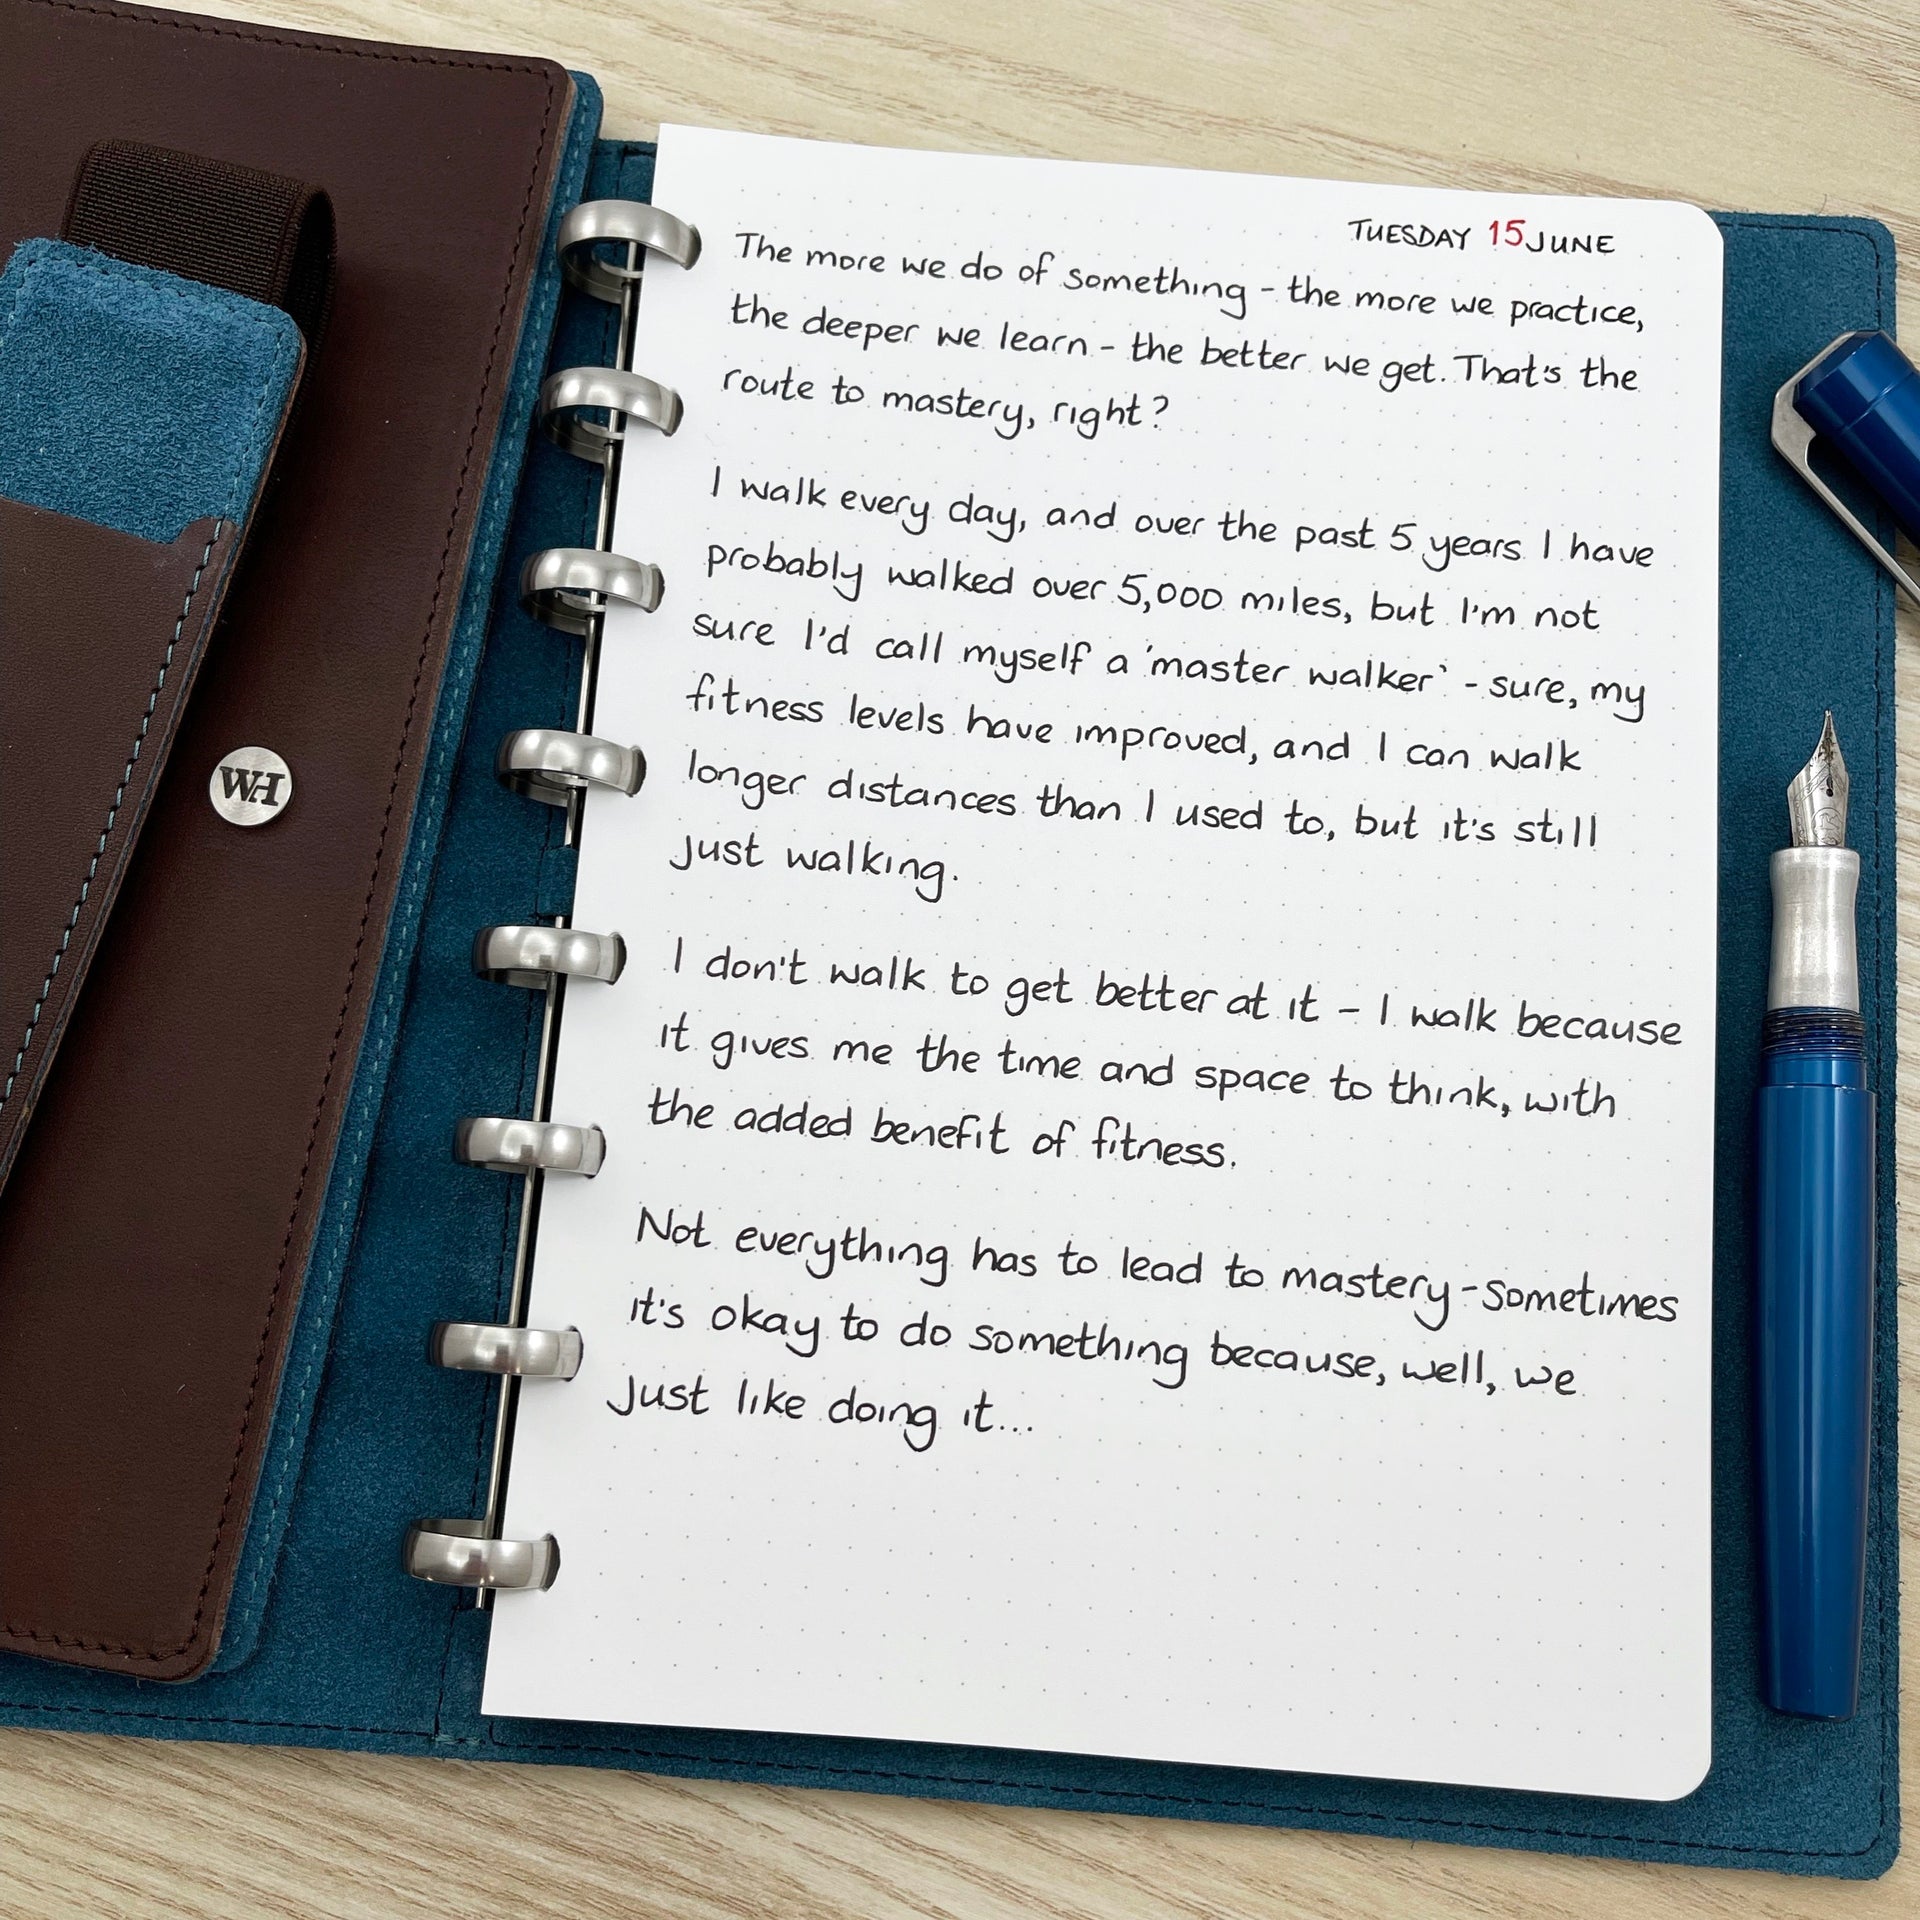 TUESDAY 15 JUNE
The more we do of something - the more we practice,
the deeper we learn - the better we get. That's the
route to mastery, right?
I walk every day, and over the past 5 years I have
probably walked over 5,000 miles, but I'm not
sure I'd call myself a 'master walker' - sure, my
fitness levels have improved, and I can walk
longer distances than I used to, but it's still
just walking.
I don't walk to get better at it - I walk because
it gives me the time and space to think, with
the added benefit of fitness.
Not everything has to lead to mastery - sometimes
it's okay to do something because, well, we
just like doing it...
WH